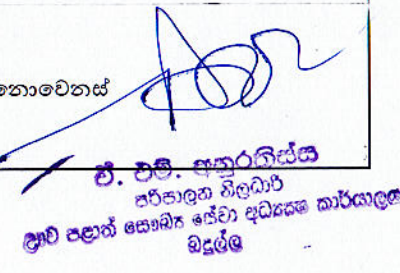 නොවෙනස්
ඒ. එම්. අනුරතිස්ස
පරිපාලන නිලධාරි
ඌව පළාත් සෞඛ්‍ය සේවා අධ්‍යක්ෂ කාර්යාලය
බදුල්ල